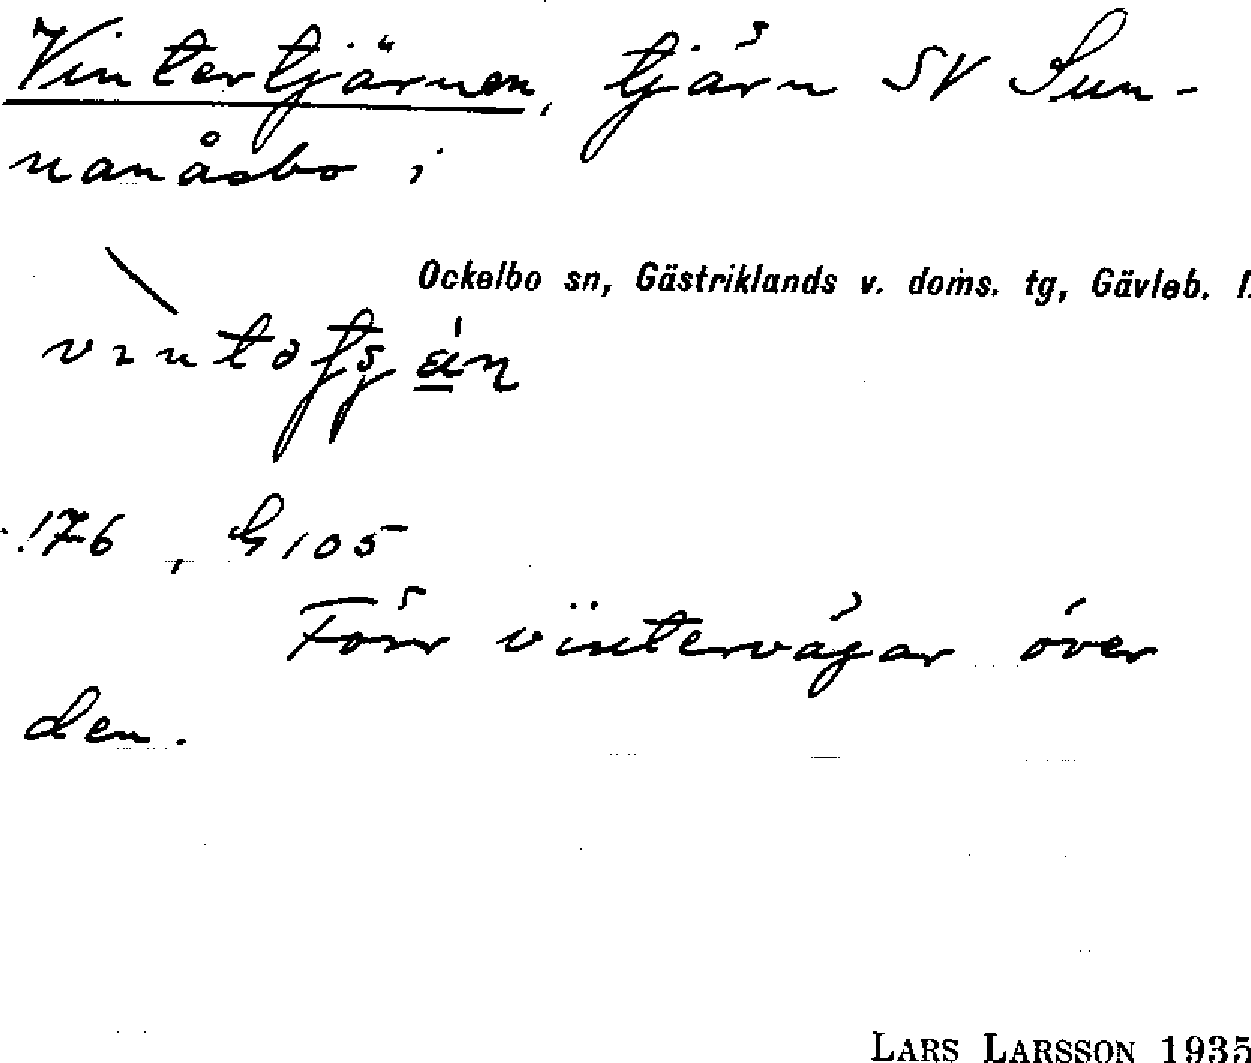 Vintertjärnen, tjärn SV Sun-
nanåsbo i
Ockelbo sn, Gästriklands v. doms. tg, Gävleb. l.
176, G 105
Förr vintervägar över
den.
LARS LARSSON 1935